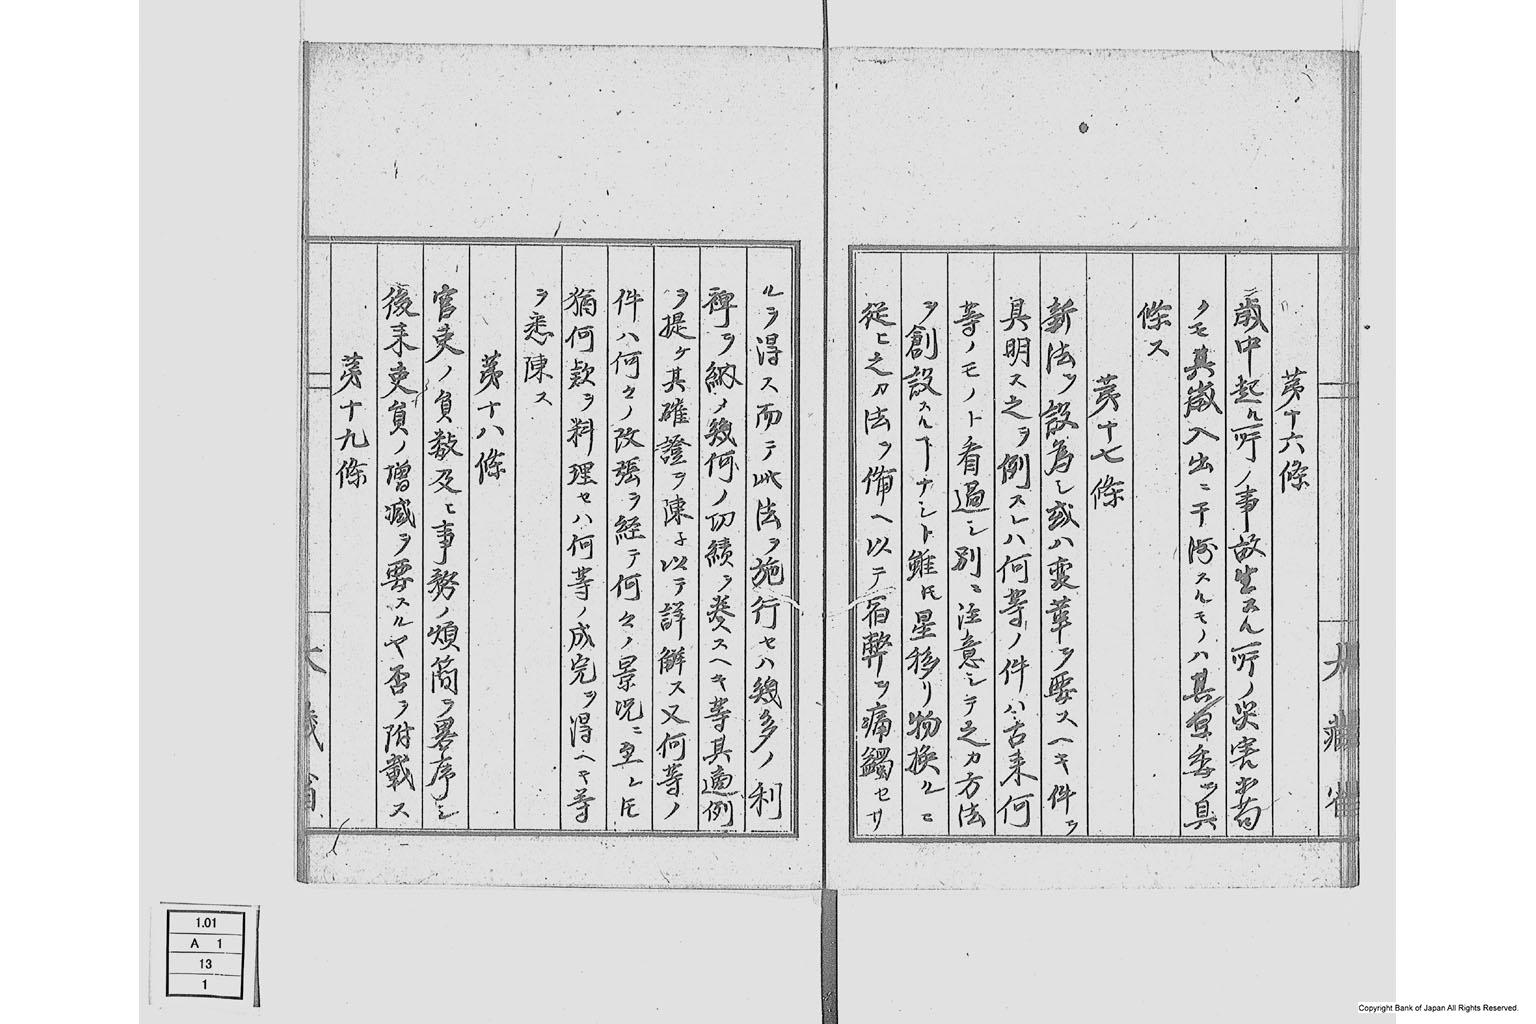 第十六條
歳中起ル所ノ事故生スル所ノ災害苟
クモ其歳入出ニ干渉スルモノハ其原委ヲ具
條ス
第十七條
新法ヲ設為シ或ハ変革ヲ要スヘキ件ヲ
具明ス之ヲ例スレハ何等ノ件ハ古来何
等ノモノト看過シ別ニ注意シテ之カ方法
ヲ創設スルヿナシト雖𪜈星移リ物換ルニ
従ヒ之カ法ヲ備ヘ以テ宿弊ヲ痛蠲セサ
ルヲ得ス而テ此法ヲ施行セハ幾多ノ利
裨ヲ納メ幾何ノ功績ヲ奏スヘキ等其適例
ヲ提ケ其確證ヲ陳シ以テ詳解ス又何等ノ
件ハ何々ノ改張ヲ経テ何々ノ景况ニ至レ𪜈
猶何款ヲ料理セハ何等ノ成完ヲ得ヘキ等
ヲ悉陳ス
第十八條
官吏ノ負数及ヒ事務ノ煩簡ヲ畧序シ
後来吏負ノ増减ヲ要スルヤ否ヲ附載ス
第十九條
大藏省
1.01
A 1
13
1
Copyright Bank of Japan All Rights Reserved.